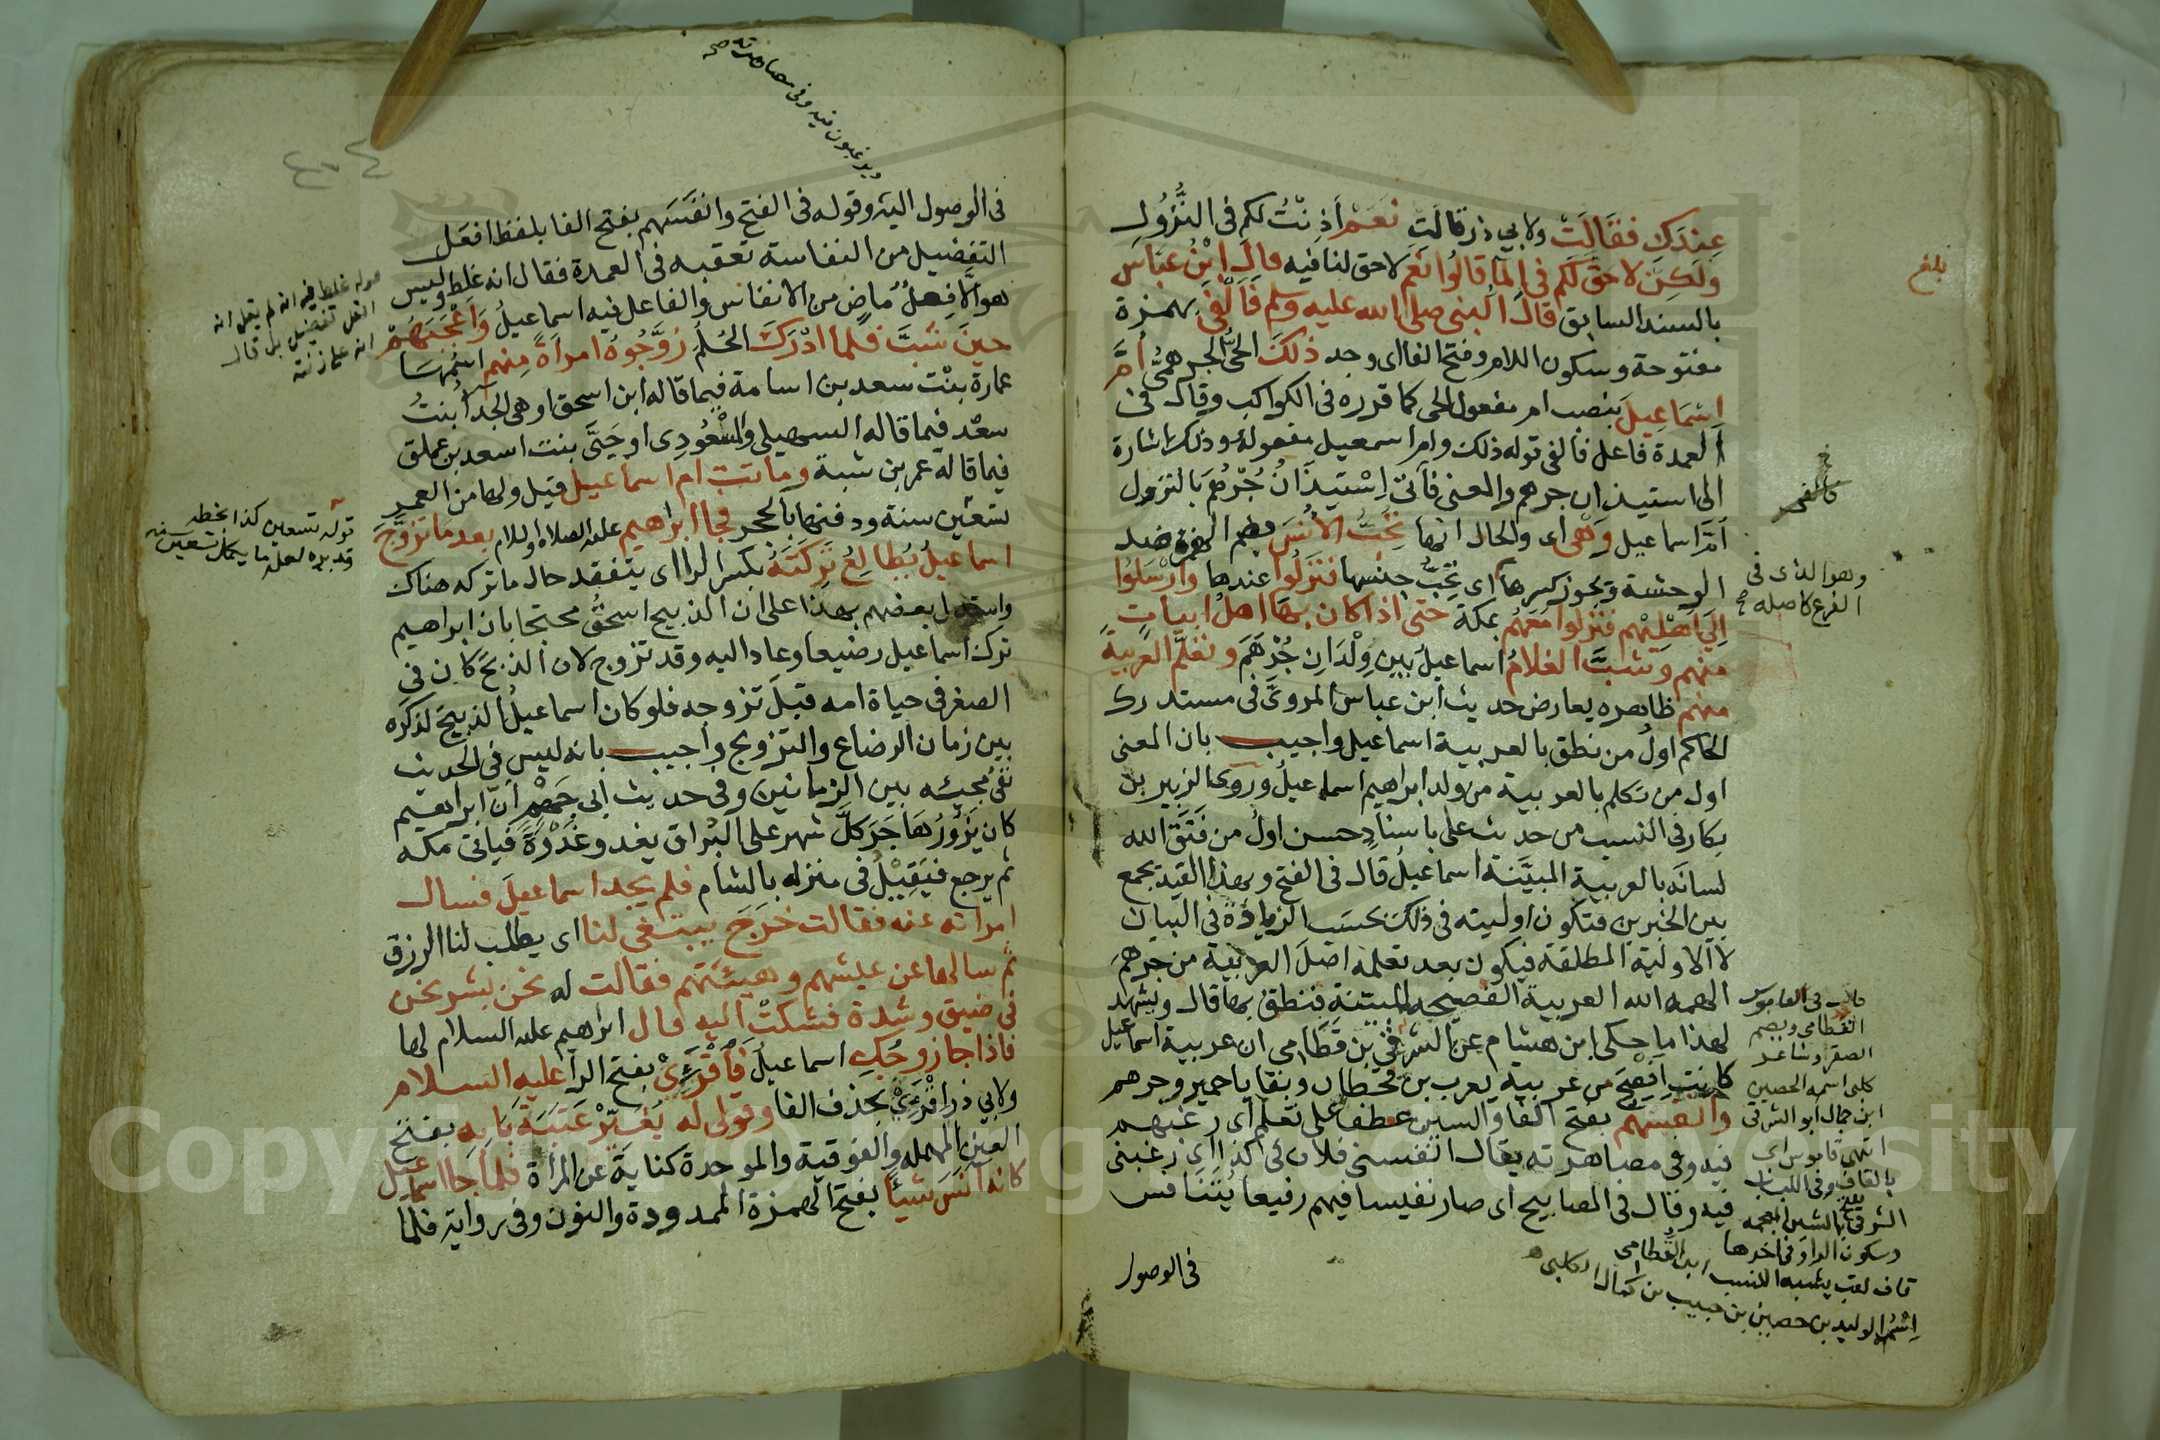 عِنْدَكِ فقَالَتْ ولابي ذر قالَت نَعَمْ أَذِنْتُ لكم في النُّزُولِ
وَلَكِنْ لا حقَّ لَكم في المآ قالُوا نَعَمْ لا حق لنا فيه قال ابْنُ عَبَّاسٍ
بالسند السابق قالَ النبي صلى الله عليه وسلم فَأَلْفَى بهمزة
مفتوحة وسكون اللام وفتح الفا اى وجد ذلكَ الحيُّ الجرهميُّ أُمَّ
اِسْمَاعِيلَ بنصب ام مفعول الحى كما قرره في الكواكب وقال في
العمدة فاعل فالفى قوله ذلك وام اسمعيل مفعوله وذلك اشارة
الى استيذان جرهم والمعنى فأتى اِسْتِيذَانُ جُرْهُمَ بالنزول
اُمَّ اسماعيل وَهْيَ اى والحال انها تُحِبُّ الأُنْسَ بضم الهمزة ضد
الوحشة ويجوز كسرها اى تُحِبُّ جنْسها فنَزَلُوا عندها وَأَرْسَلُوا
اِلَى اَهْلِيهِم فنزلوا مَعَهُم بمكة حَتى اذا كان بهَا اهلُ ابياتٍ
منهم وَشَبَّ الغلامُ اسماعيلُ بين وِلْدَانِ جُرْهَمَ وتعَلَّمَ العربيةَ
منهم ظاهره يعارض حديث ابن عباس المروىَّ في مستدرك
الحاكم اولُ من نطق بالعربية اسماعيل واجيب بان المعنى
اول من تكلم بالعربية من ولد ابراهيم اسماعيلُ وروى الزبير بن
بكار في النسب من حديث على باسنادٍ حسن اولُ من فَتَقَ الله
لسانَه بالعربية المبيَّنة اسماعيلُ قال في الفتح وبهذا القيد يجمع
بين الخبرين فتكون اوليته في ذلك بحسَب الزيادة في البيان
لا الاولية المطلقة فيكون بعد تعلمه اصلَ العربية من جرهمَ
الهمه الله العربية الفصيحة المبينة فنطق بها قال ويشهد
لهذا ما حكى ابن هشام عن الشرقي بن قَطَامي ان عربية اسماعيل
كانت اَفصحَ من عربية يعرب بن قحطان وبقايا حمير وجرهم
وأنفسَهم بفتح الفا والسين عطفا على تعلم اى رغبهم
فيه وفي مصاهرته يقال انفسنى فلان في كذا اى رغبنى
فيه وقال في المصابيح اى صار نفيسا فيهم رفيعا يُتَنَافس
في الوصول
بلغ
وهو الذى في
الفرع كاصله
قال في القاموس
القطامى ويضم
الصقر وشاعر
كلبى اسمه الحصين
ابن جمال ابو الشرقى
انتهى قاموس اى
بالقاف وفي اللباب
الشرقى بالشين المعجمه
وسكون الرا وفى اخرها
قاف لقب يشبه النسب ابن القُطامى
اِسْمُه الوليد بن حصين بن حبيب بن كمال الكلبى
ويرغبون فيه وفي مصاهرته صح
في الوصول اليه وقوله في الفتح وانفَسَهم بفتح الفا بلفظ افعَلِ
التفضيل من النفاسة تعقبه في العمدة فقال انه غلط وليس
هو الَّا فِعلٌ مَاضٍ من الانفاس والفاعل فيه اسماعيلُ وَاَعْجَبَهُمْ
حينَ شَبَّ فلما ادْرَكَ الحُلُمَ زَوَّجُوهُ امراَةً مِنهم اسْمُها
عمارة بنْت سعد بن اسامة فيما قاله ابن اسحق او هى الجدآ بنتُ
سعْد فيما قاله السهيلى والمسْعُودِى او حَيّىَ بنت اسعد بن عملق
فيما قاله عمر بن شبة وماتت ام اسماعيل قيل ولها من العمر
تسعين سنة ودفنها بالحجر فجا ابراهيم عليه الصلاة والسلام بعد ما تزوَّجَ
اسماعيلُ يُطالِعُ تَرِكَتَهُ بكسر الرا اى يتفقد حال ما تركه هناك
واستدل بعضهم بهذا على ان الذبيح اسحقُ محتجا بان ابراهيم
ترك اسماعيل رضيعا وعاد اليه وقد تزوج لان الذبحَ كان في
الصغر في حياة امه قبلَ تزوجه فلو كان اسماعيلُ الذبيحَ لذكره
بين زمان الرضاع والتزويج واجيب بانه ليس في الحديث
نفىُ مجيئه بين الزمانين وفى حديث ابي جَهْم ان ابراهيم
كان يَزورُ هَاجَرَ كلَّ شهر على البُراق يغدو غَدْوَةً فياتى مكة
ثم يرجع فيَقِيْلُ في منزله بالشام فلم يجد اسماعيلَ فسال
امراته عنه فقالت خَرَجَ يبتغى لنا اى يطلب لنا الرزق
ثم سالها عن عيشهم وهيئتهم فقالت له نحن بشر نحن
في ضيق وشدة فشكتْ اليه قال ابراهيم عليه السلام لها
فاذا جا زوجُكِ اسماعيلُ فَاقْرَئِىْ بفتح الرآ عليه السلام
ولابي ذر اقْرَئِىْ بحذف الفا وقولى له يُغَيِّرْ عَتَبَةَ بَابِه بفتح
العين المهمله والفوقية والموحدة كناية عن المرأة فلما جا اسماعيل
كانه آنَسَ شيئًا بفتح الهمزة الممدودة والنون وفي رواية فلما
قوله غلط فيه انه لم يقل انه
افعل تفضيل بل قال
انه على زنته
قوله تسعين كذا بخطه